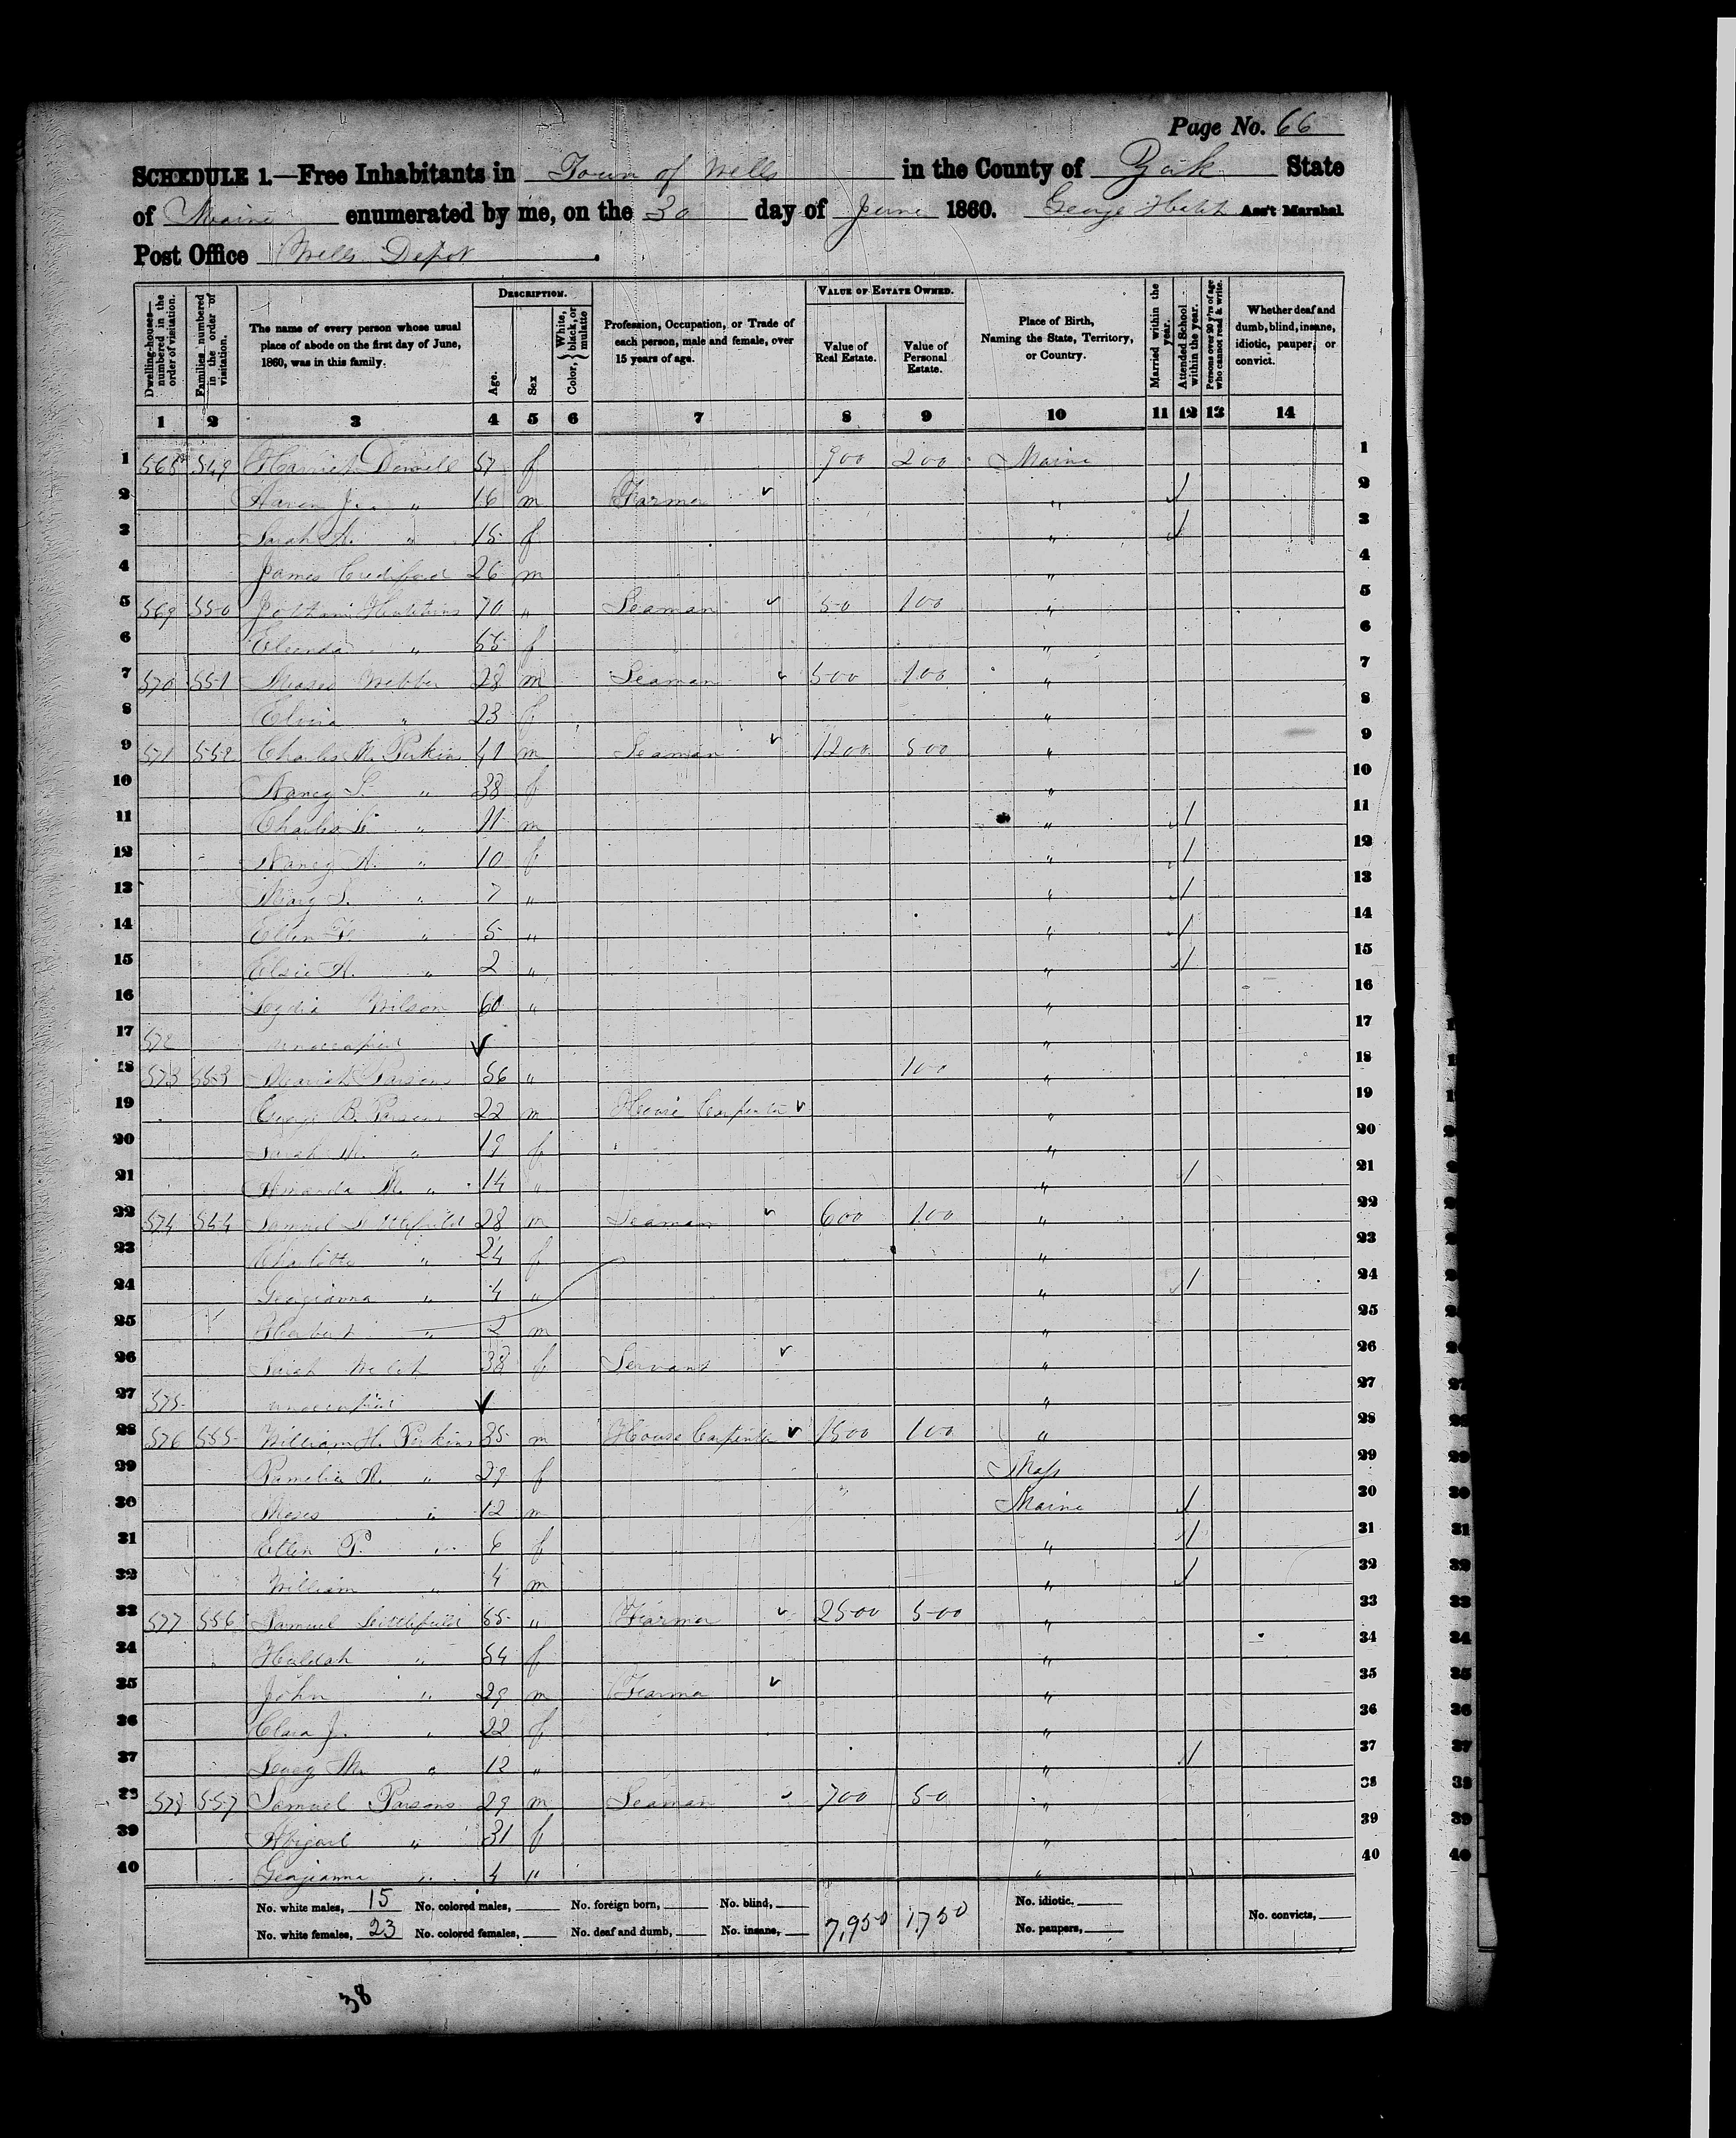 Page No. 66
SCHEDULE 1.—Free Inhabitants in Town of Wells in the County of York State
of Maine enumerated by me, on the 30 day of June 1860. George Hatch Ass't Marshal
Post Office Wells Depot
Dwelling-houses—numbered in the order of visitation.
Families numbered in the order of visitation.
The name of every person whose usual place of abode on the first day of June, 1860, was in this family.
DESCRIPTION.
Age.
Sex
Color, { White, black, or mulatto
Profession, Occupation, or Trade of each person, male and female, over 15 years of age.
VALUE OF ESTATE OWNED.
Value of Real Estate.
Value of Personal Estate.
Place of Birth, Naming the State, Territory, or Country.
Married within the year.
Attended School within the year.
Persons over 20 y'rs of age who cannot read & write.
Whether deaf and dumb, blind, insane, idiotic, pauper, or convict.
1 2 3 4 5 6 7 8 9 10 11 12 13 14
1 568 549 Harriet 57 f 900 200 Maine 1
2 J. " 16 m Farmer " / 2
3 Sarah " 15 f " / 3
4 James Credeford 26 m " 4
5 569 550 Jotham Hutchins 70 " Seaman 50 100 " 5
6 " 65 f " 6
7 570 551 Moses Webber 28 m Seaman 500 100 " 7
8 " 23 f " 8
9 571 552 Charles Perkins 41 m Seaman 1200 500 " 9
10 Nancy " 38 f " 10
11 Charles " 11 m " / 11
12 Nancy " 10 f " / 12
13 Mary " 7 " " / 13
14 Ellen " 5 " " / 14
15 Elsie " 2 " " / 15
16 Lydia Wilson 60 " " 16
17 572 unoccupied " 17
18 573 553 Parsons 56 " 100 " 18
19 George B. Parsons 22 m House Carpenter " 19
20 Sarah " 19 f " 20
21 Amanda M. " 14 " " / 21
22 574 544 Samuel Littlefield 28 m Seaman 600 100 " 22
23 Charlotte " 24 f " 23
24 Georgianna " 4 " " / 24
25 Herbert " 2 m " 25
26 Sarah Welch 38 f Servant " 26
27 575 unoccupied " 27
28 576 555 William H. Perkins 35 m House Carpenter 1500 100 " 28
29 Pamelia " 29 f Mass 29
30 Moses " 12 m Maine / 30
31 Ellen P. " 6 f " / 31
32 William " 4 m " / 32
33 577 556 Samuel Littlefield 55 " Farmer 2500 500 " 33
34 Huldah " 54 f " 34
35 John " 29 m Farmer " 35
36 Clara J. " 22 f " 36
37 M. " 13 " " / 37
38 578 557 Samuel Parsons 29 m Seaman 700 50 " 38
39 Abigail " 31 f " 39
40 Georgianna " 4 " " 40
No. white males, 15 No. colored males, No. foreign born, No. blind, 7,950 1,750 No. idiotic,
No. white females, 23 No. colored females, No. deaf and dumb, No. insane, No. paupers, No. convicts,
38